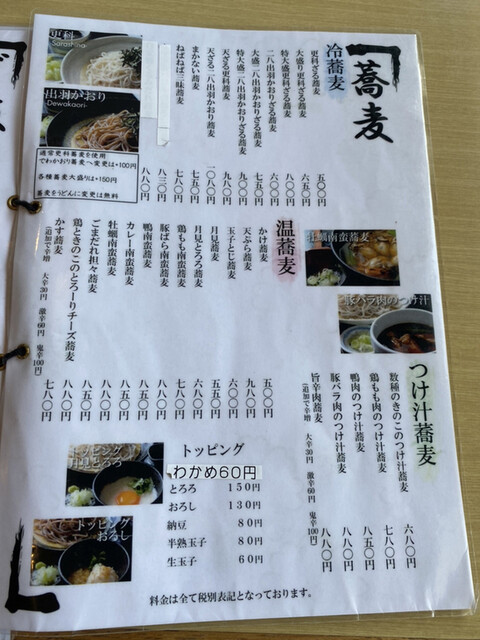 蕎麦
冷蕎麦
更科ざる蕎麦
大盛り更科ざる蕎麦
特大盛更科ざる蕎麦
二八出羽かおりざる蕎麦
大盛二八出羽かおりざる蕎麦
特大盛二八出羽かおりざる蕎麦
天ざる更科蕎麦
天ざる二八出羽かおり蕎麦
まかない蕎麦
ねばねば三味蕎麦
五〇〇円
六五〇円
八〇〇円
六〇〇円
七五〇円
九〇〇円
九八〇円
一〇八〇円
七八〇円
八三〇円
八八〇円
更科
Sarashina
出羽かおり
Dewakaori
通常更科蕎麦を使用
でわかおり蕎麦へ変更は+100円
各種蕎麦大盛りは+150円
蕎麦をうどんに変更は無料
温蕎麦
かけ蕎麦
天ぷら蕎麦
玉子とじ蕎麦
月見蕎麦
月見とろろ蕎麦
鶏もも南蛮蕎麦
豚ばら南蛮蕎麦
鴨南蛮蕎麦
カレー南蛮蕎麦
牡蠣南蛮蕎麦
ごまだれ担々蕎麦
鶏ときのこのとろーりチーズ蕎麦
かす蕎麦
(追加で辛増 大辛30円 激辛60円 鬼辛100円)
五〇〇円
九八〇円
六〇〇円
五五〇円
六八〇円
七八〇円
八八〇円
八八〇円
八五〇円
八八〇円
八五〇円
八八〇円
七八〇円
牡蠣南蛮蕎麦
豚バラ肉のつけ汁
つけ汁蕎麦
数種のきのこのつけ汁蕎麦
鶏もも肉のつけ汁蕎麦
鴨肉のつけ汁蕎麦
豚バラ肉のつけ汁蕎麦
旨辛肉蕎麦
(追加で辛増 大辛30円 激辛60円 鬼辛100円)
六八〇円
七八〇円
八五〇円
八八〇円
八八〇円
トッピング
月見とろろ
トッピング
おろし
トッピング
わかめ60円
とろろ 150円
おろし 130円
納豆 80円
半熟玉子 80円
生玉子 60円
料金は全て税別表記となっております。